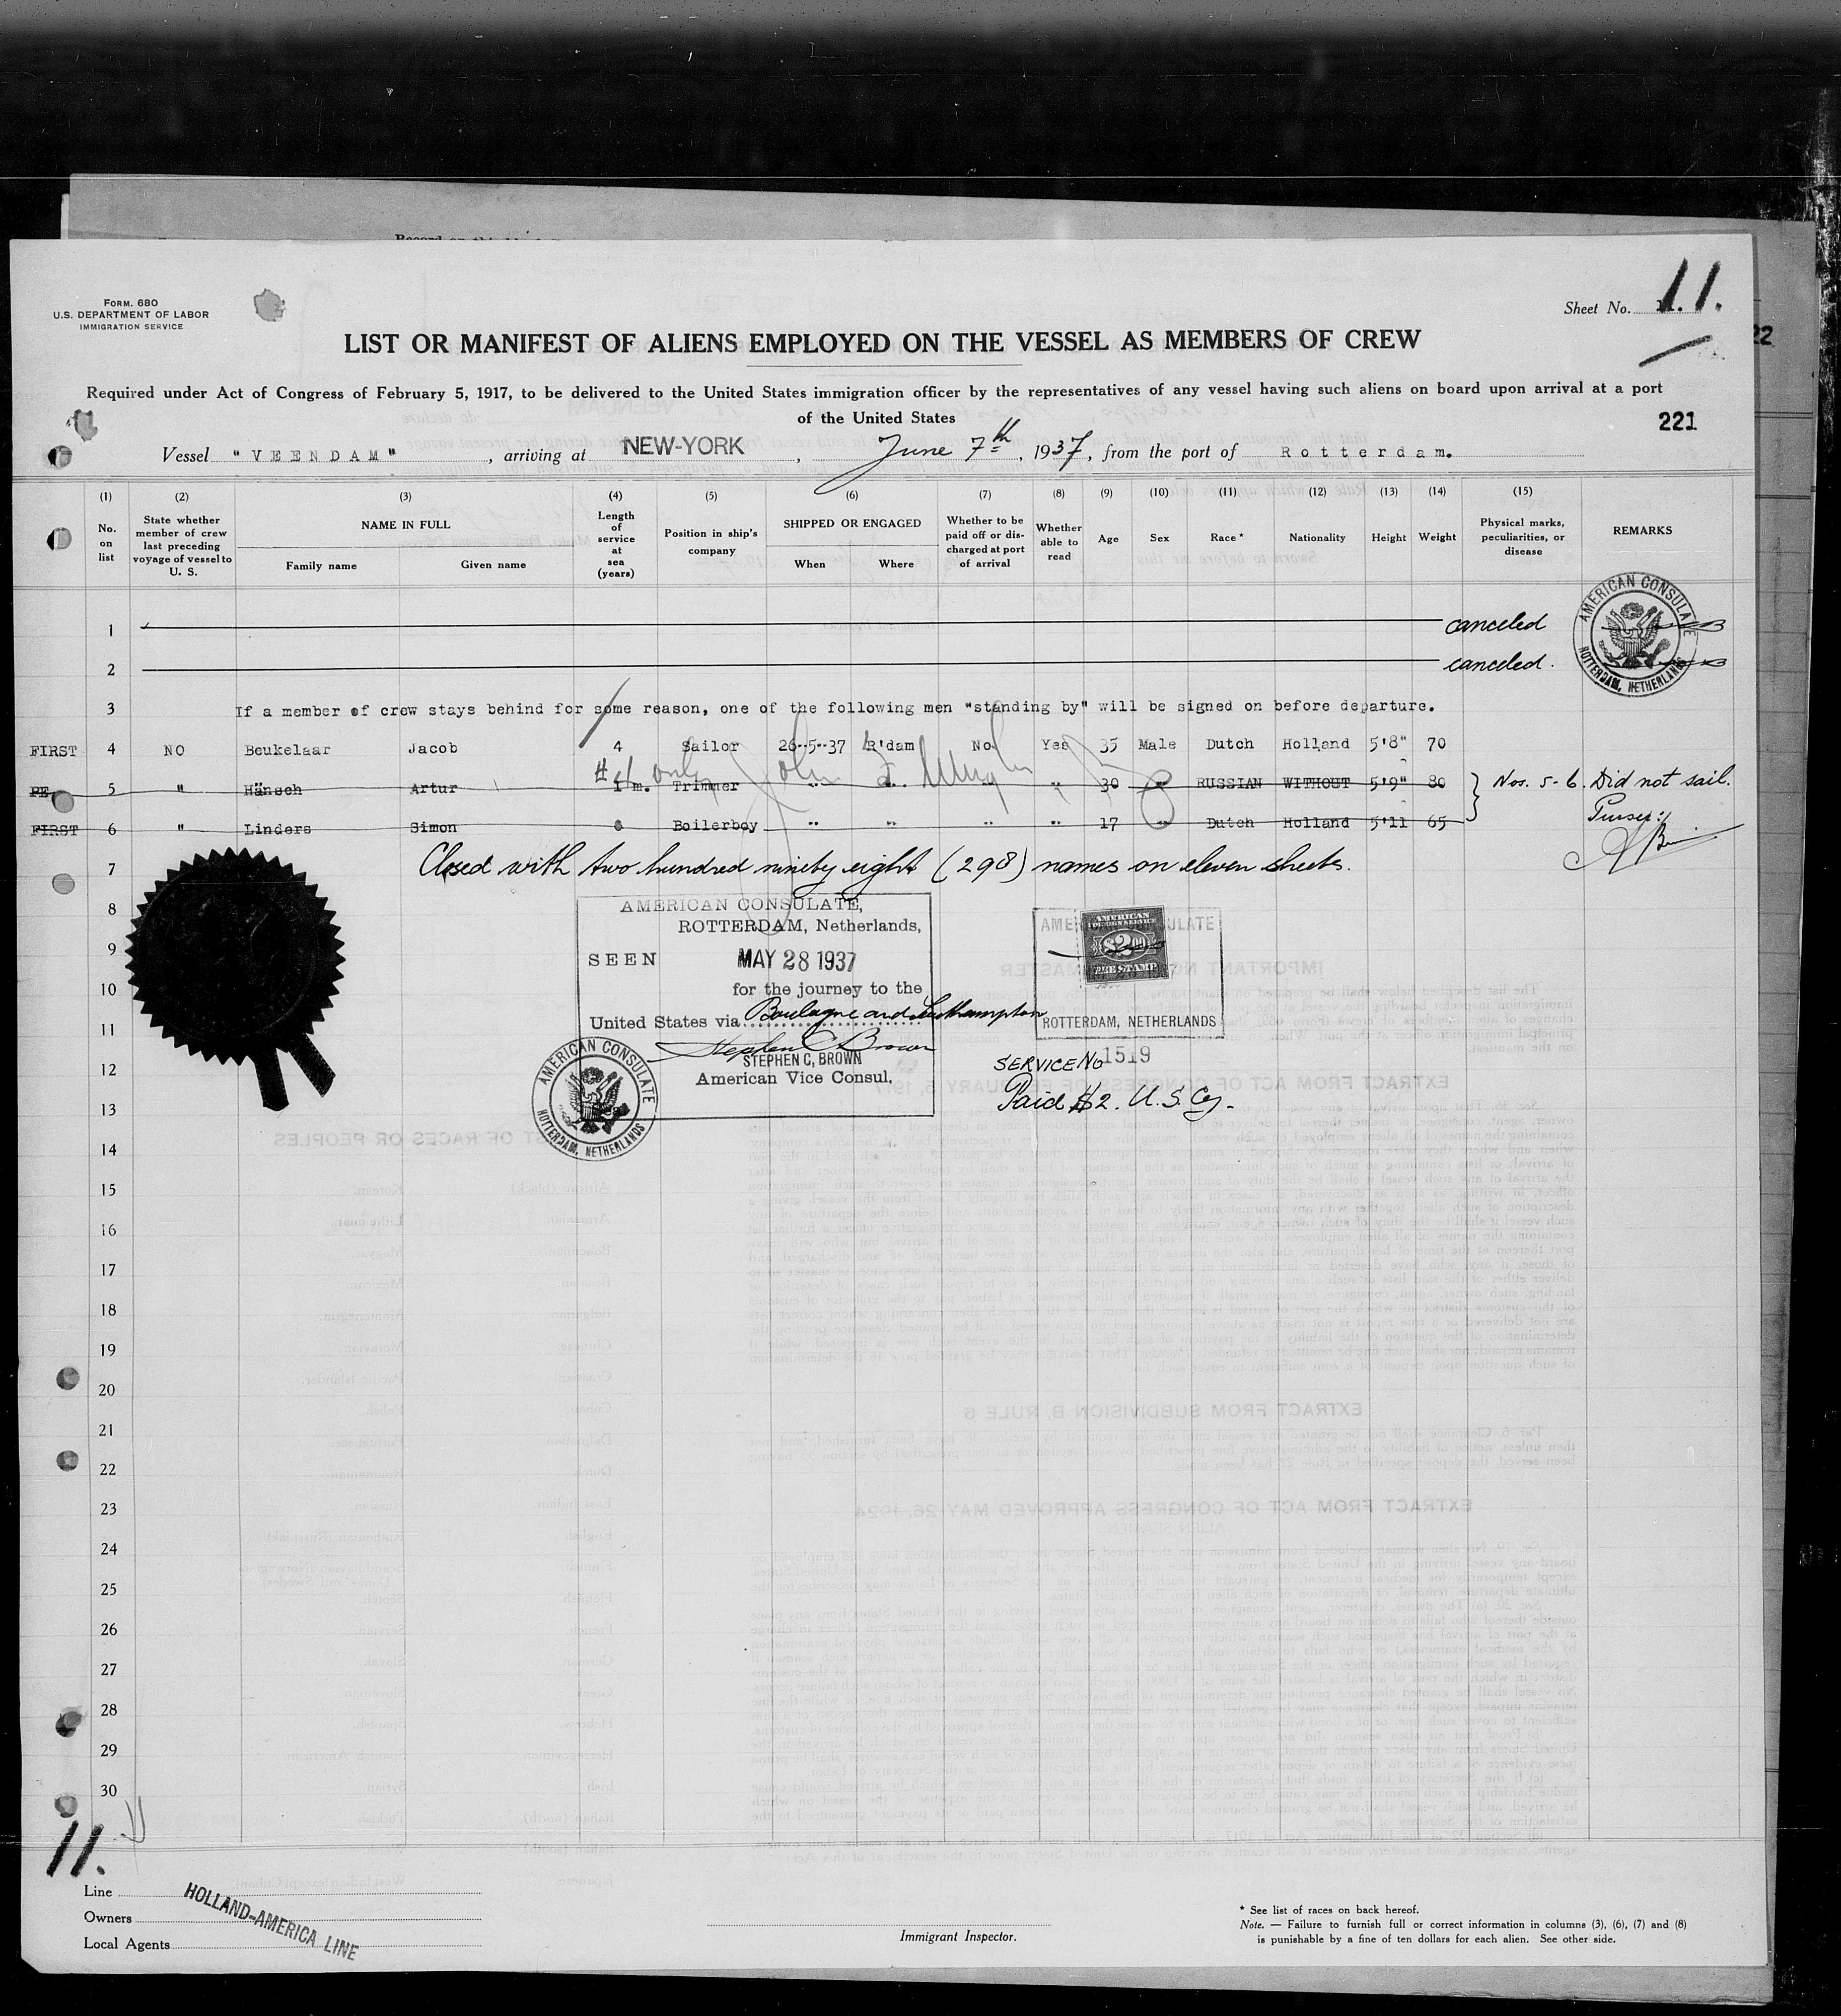 FORM. 680
U.S. DEPARTMENT OF LABOR
IMMIGRATION SERVICE
Sheet No. 11.
LIST OR MANIFEST OF ALIENS EMPLOYED ON THE VESSEL AS MEMBERS OF CREW
Required under Act of Congress of February 5, 1917, to be delivered to the United States immigration officer by the representatives of any vessel having such aliens on board upon arrival at a port
of the United States
22
221
Vessel "VEENDAM", arriving at NEW-YORK, June 7th, 1937, from the port of Rotterdam.
(1) (2) (3) (4) (5) (6) (7) (8) (9) (10) (11) (12) (13) (14) (15)
No. on list
State whether member of crew last preceding voyage of vessel to U. S.
NAME IN FULL
Family name
Given name
Length of service at sea (years)
Position in ship's company
SHIPPED OR ENGAGED
When
Where
Whether to be paid off or discharged at port of arrival
Whether able to read
Age
Sex
Race *
Nationality
Height
Weight
Physical marks, peculiarities, or disease
REMARKS
1 canceled
2 canceled.
AMERICAN CONSULATE
ROTTERDAM, NETHERLANDS
3 If a member of crew stays behind for some reason, one of the following men "standing by" will be signed on before departure.
FIRST 4 NO Beukelaar Jacob 4 Sailor 26-5-37 R'dam No Yes 35 Male Dutch Holland 5'8" 70
#4 only
PE. 5 " Hänsch Artur 1 m. Trimmer " " " " 30 " RUSSIAN WITHOUT 5'9" 80 Nos. 5-6. Did not sail.
FIRST 6 " Linders Simon Boilerboy " " " " 17 " Dutch Holland 5'11 65 Purser:
7 Closed with two hundred ninety eight (298) names on eleven sheets.
8
9
10
11
12
13
14
15
16
17
18
19
20
21
22
23
24
25
26
27
28
29
30
AMERICAN CONSULATE,
ROTTERDAM, Netherlands,
SEEN MAY 28 1937
for the journey to the
United States via Boulogne and Southampton
Stephen C. Brown
STEPHEN C. BROWN
American Vice Consul.
AMERICAN CONSULATE
ROTTERDAM, NETHERLANDS
AMERICAN CONSULATE
AMERICAN
FOREIGN SERVICE
$2.00
FEE STAMP
ROTTERDAM, NETHERLANDS
SERVICE No 1519
Paid $2. U.S. Cy.
11.
Line
Owners
Local Agents
HOLLAND-AMERICA LINE
Immigrant Inspector.
* See list of races on back hereof.
Note. — Failure to furnish full or correct information in columns (3), (6), (7) and (8)
is punishable by a fine of ten dollars for each alien. See other side.